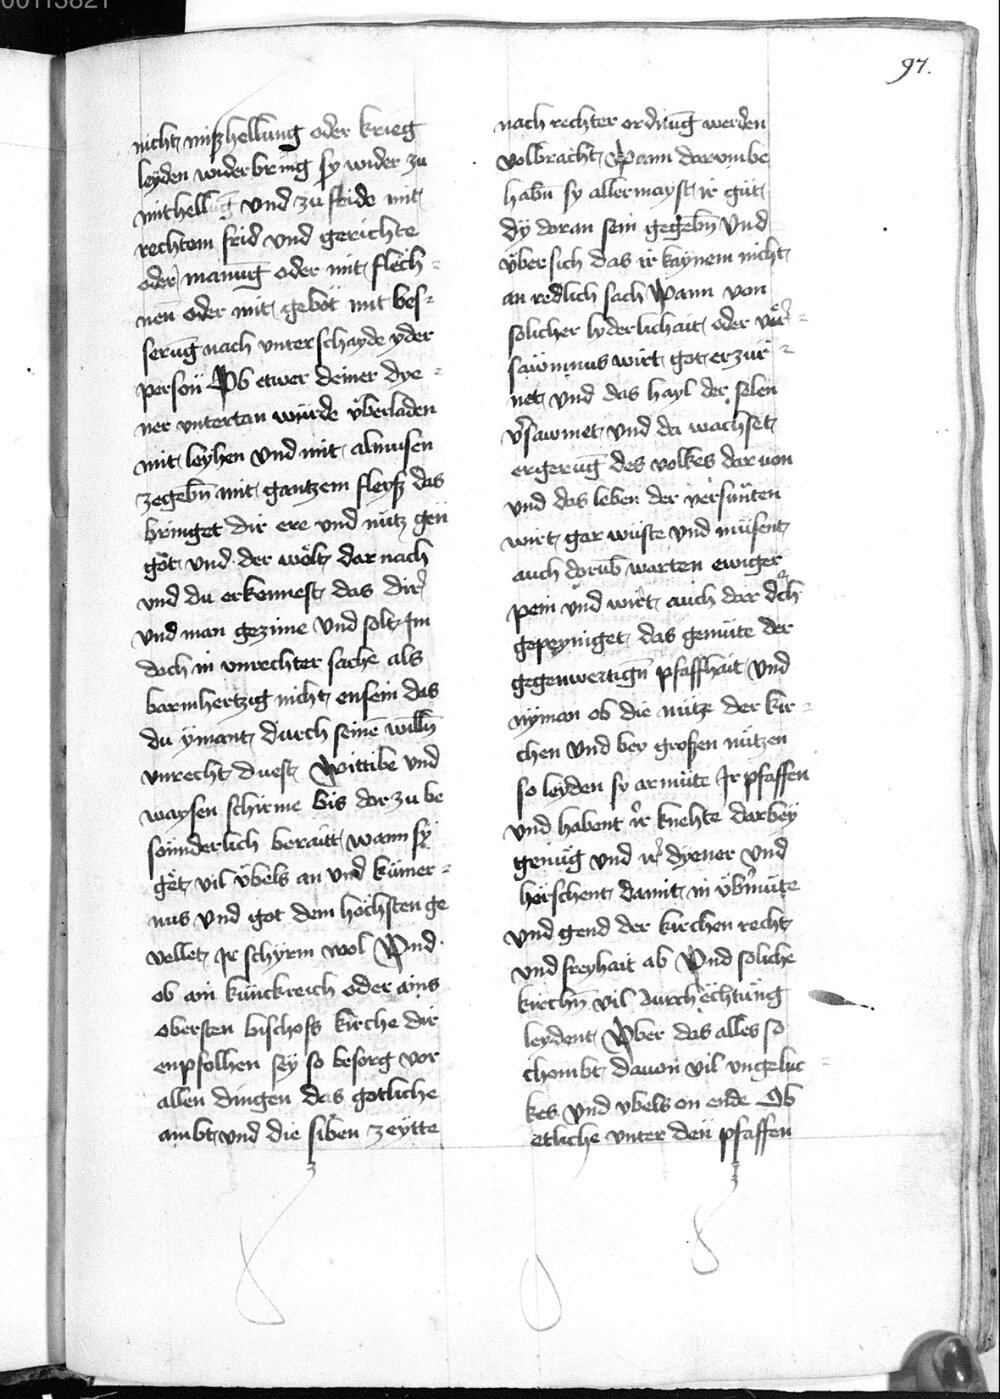 00113821
97.
nicht mißhellung oder krieg
leyden widerbring sy wider zu
mithellūg vnd zu fride mit
rechtem frid vnd gerichte
oder manūg oder mit flech=
nen oder mit gebot mit bes=
serūg nach vnterschayde yder
person Ob etwer deiner dye=
ner vntertan würde vberladen
mit leyhen vnd mit almusen
zegebn̄ mit gantzem fleyß das
bringet dir ere vnd nütz gen
got vnd der wölt dar nach
vnd du erkennest das dir
vnd man gezime vnd solt Im
doch in vnrechter sache als
barmhertzig nicht ensein das
du ymant durch seinē willn̄
vnrecht duest Wittibe vnd
waysen schirme bis dar zu be
sünderlich beraitt wann sy
get vil vbels an vnd kümer=
nus vnd got dem höchsten ge
vellet Ir schyrm wol Vnd
ob ain künckreich oder ains
obersten bischofs kirche dir
enpfolhen sey so besorg vor
allen dingen das gotliche
ambt vnd die siben zeytte
nach rechter ordnūg werden
volbracht Wann darvmbe
habn̄ sy allermayst ir güt
dy doran sein gegebn̄ Vnd
vber sich das ir kaynem nicht
an redlich sach Wann von
solicher lyderlichait oder ver=
säwmnus wirt got erzür=
net vnd das hayl der selen
v̄sawmet vnd da wachset
ergerūg des volkes dar von
vnd das leben der versünten
wirt gar wüste vnd müsent
auch dorūb warten ewiger
pein vnd wirt auch dar dch
gepeyniget das gemüte der
gegenwertign̄ pfaffhait vnd
nyman ob die nütz der kir=
chen vnd bey großen nützen
so leyden sy armüte Ir pfaffen
vnd habent ir knehte darbey
genüg vnd ir dyener vnd
herschent damit in vbermüte
vnd gend der kirchen recht
vnd freyhait ab Vnd soliche
kirchn̄ vil durch echtüng
leydent Vber das alles so
chombt davon vil vngeluc=
kes vnd vbels on ende Ob
etliche vnter den pfaffen